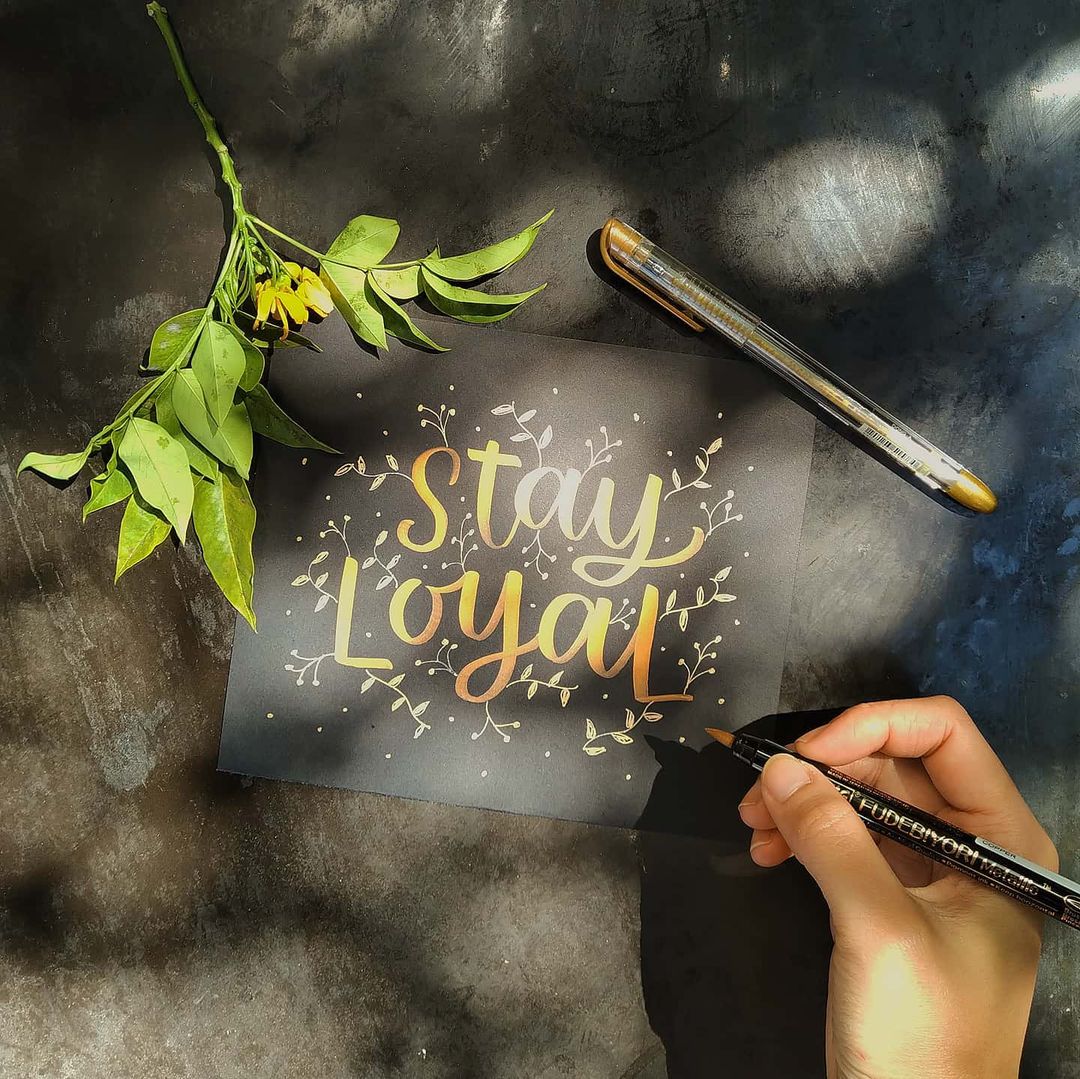 Stay
Loyal
FUDEBIYORI Metallic™
COPPER